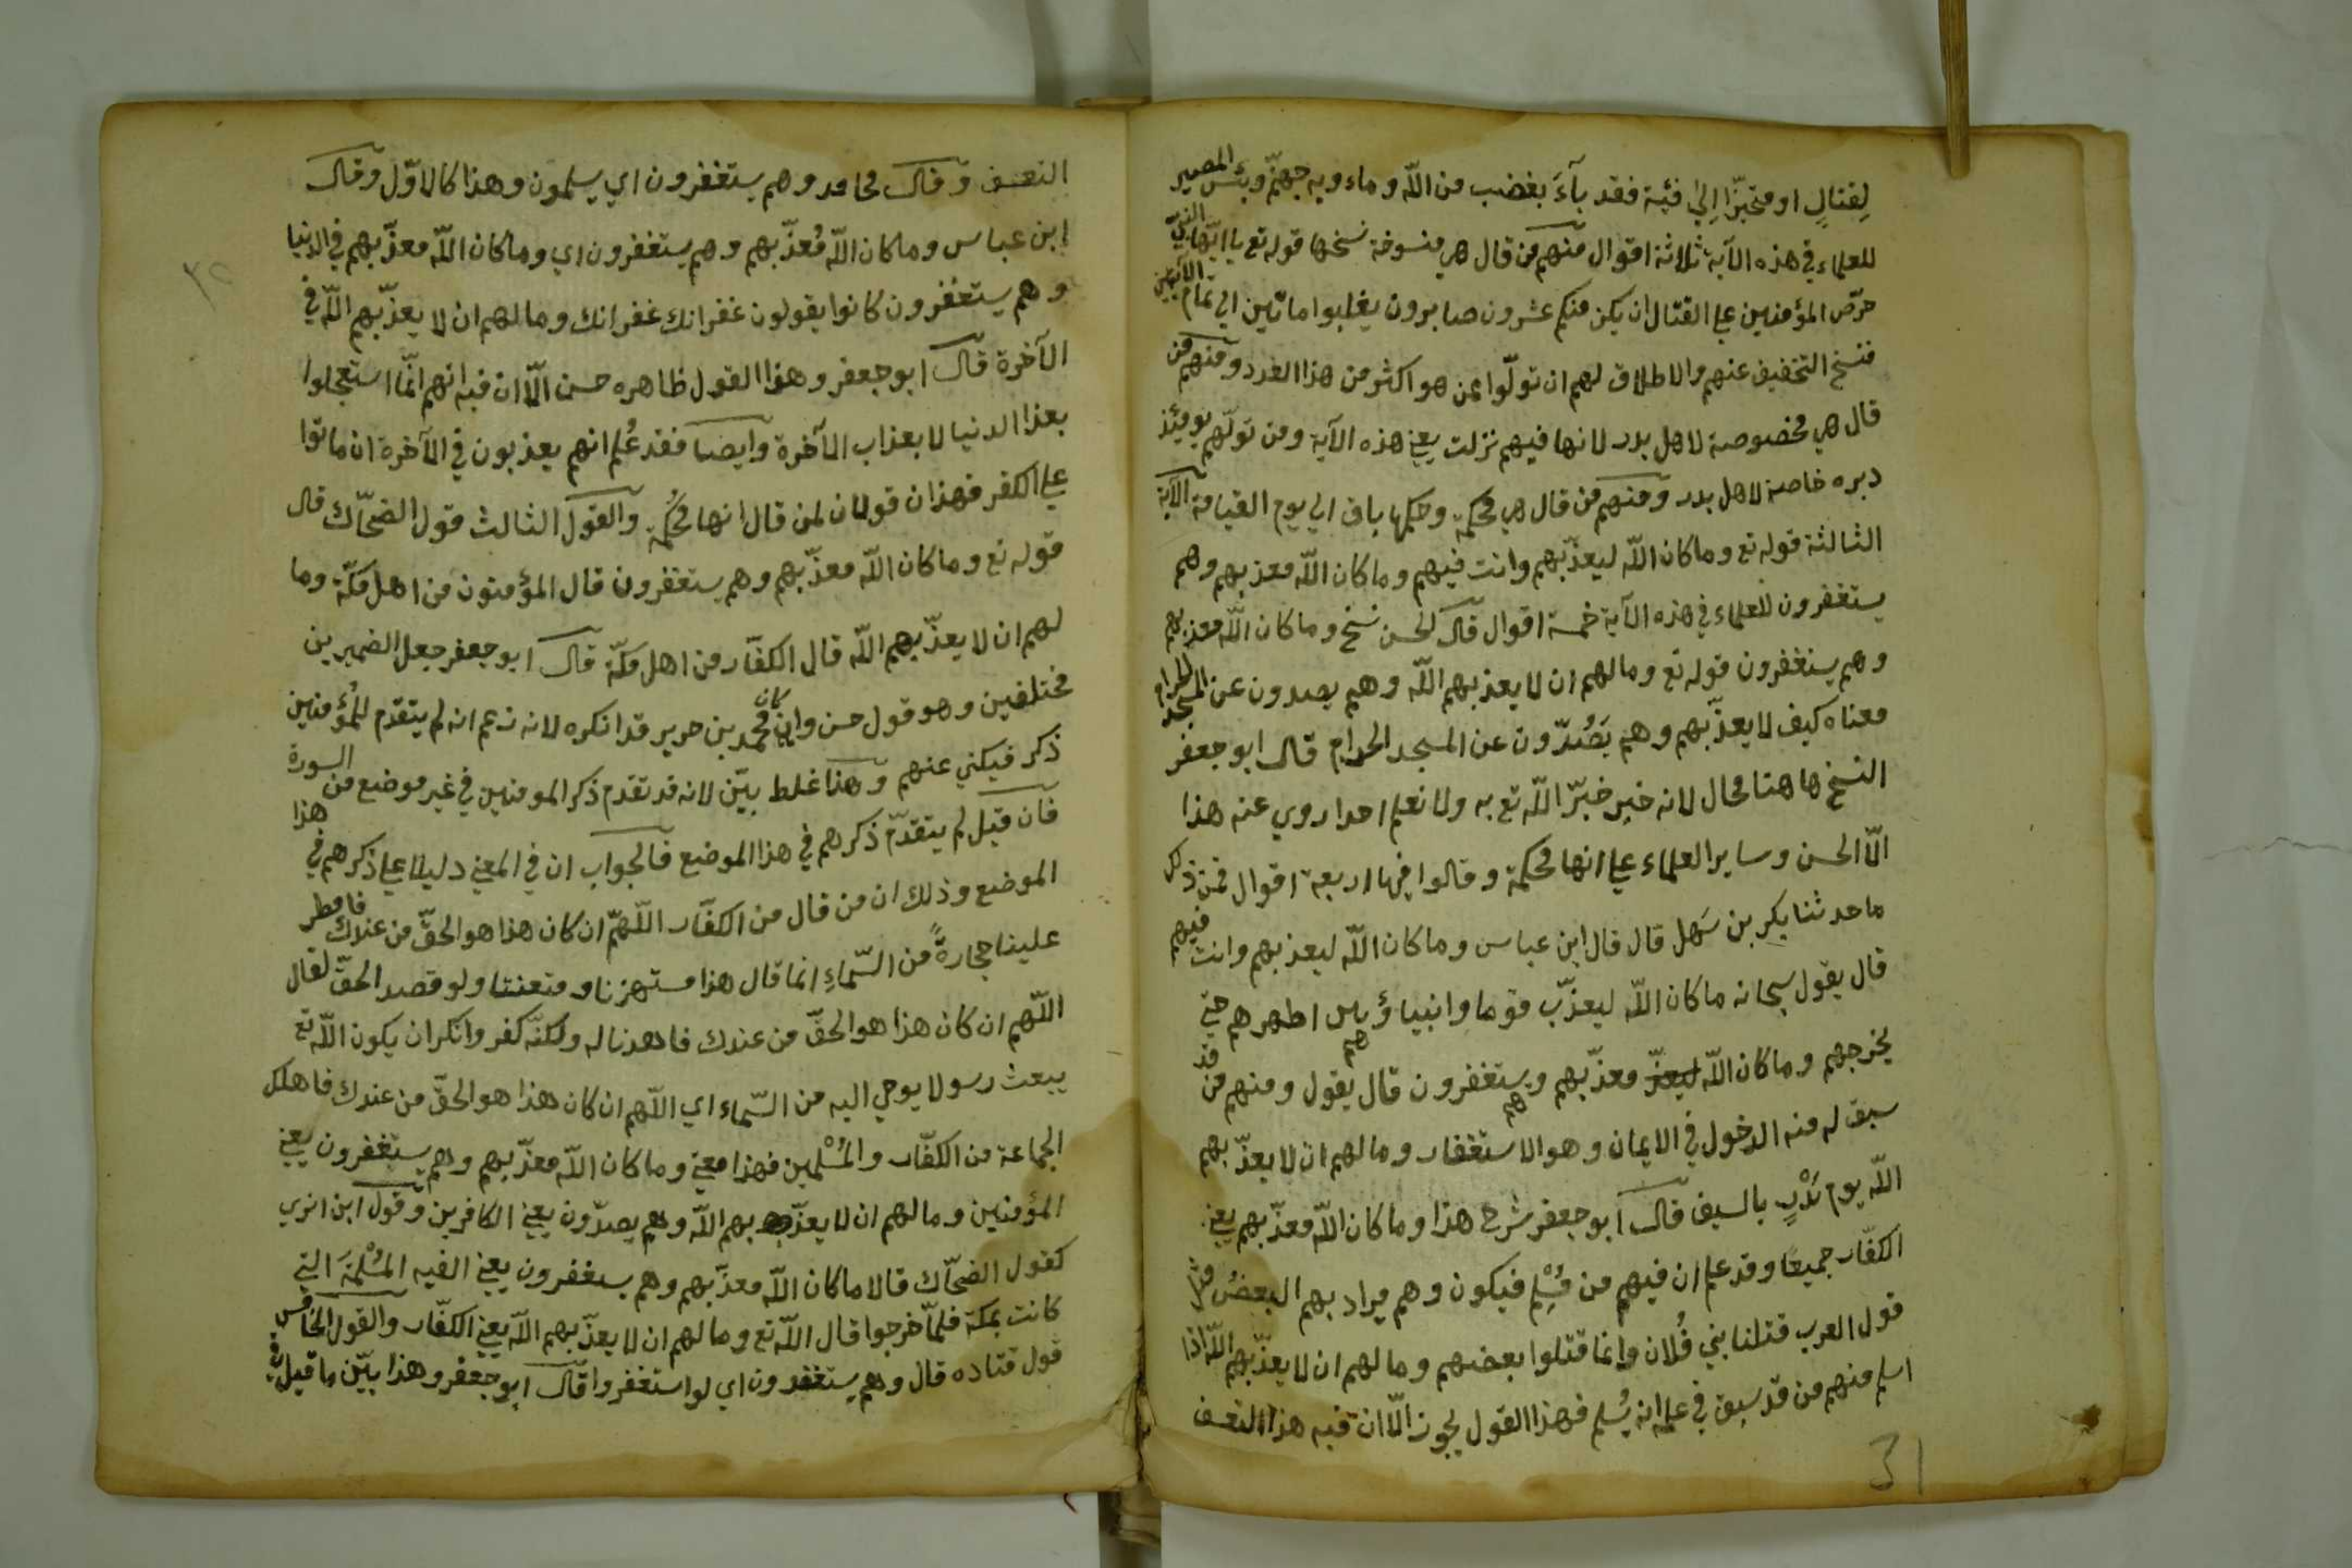 لِقتالٍ او متحيّزًا اِلىٰ فئية فقد بآءَ بغضب من اللّه وماءويه جهنّم وبئس المصير
للعلماء في هذه الآية ثلاثة اقوال منهم من قال هي منسوخة نسخها قوله تع يا ايّها النبيّ
حرّض المؤمنين علي القتال ان يكن منكم عشرون صابرون يغلبوا ماتين الي تمام الآيتين
فنسخ التخفيف عنهم والاطلاق لهم ان تولّوا ممن هو اكثر من هذا العدد ومنهم من
قال هي مخصوصة لاهل بدر لانها فيهم نزلت يعني هذه الآية ومن تولّهم يوميئذ
دبره خاصة لاهل بدر ومنهم من قال هي محكمة وحكمها باق الي يوم القيامة الآية
الثالثة قوله تع وماكان اللّه ليعذّبهم وانت فيهم وماكان اللّه معذبهم وهم
يستغفرون للعلماء في هذه الآية خمسة اقوال قال الحسن نسخ وماكان اللّه معذبهم
وهم يستغفرون قوله تع ومالهم ان لا يعذبهم اللّه وهم يصدون عن المسجد الحرام
معناه كيف لا يعذّبهم وهم يَصُدّون عن المسجد الحرام قال ابو جعفر
النسخ هاهنا محال لانه خبر خبّر اللّه تع به ولا نعلم احدا روي عنه هذا
الّا الحسن وساير العلماء علي انها محكمة وقالوا فيها اربعة اقوال فمن ذلك
ما حدثنا بكر بن سَهل قال قال ابن عباس وماكان اللّه ليعذبهم وانت فيهم
قال يقول سبحانه ماكان اللّه ليعذّب قوما وانبياؤ بين اظهرهم حتي
يخرجهم وماكان اللّه ليعذّ معذّبهم وهم يستغفرون قال يقول ومنهم من قد
سبق له منه الدخول في الايمان وهو الاستغفار ومالهم ان لا يعذّبهم
اللّه يوم بَدْرٍ بالسيف قال ابو جعفر شرح هذا وماكان اللّه معذّبهم يعني
الكفّار جميعًا وقد علم ان فيهم من مُسْلِم فيكون وهم يراد بهم البعضُ مثل
قول العرب قتلنا بني فُلان وانما قتلوا بعضهم ومالهم ان لا يعذّبهم اللّه اذا
اسلم منهم من قد سبق في علمه انه يُسلم فهذا القول يجوز الّا ان فيه هذا التعسف
31
التعسف وقال مجاهد وهم يستغفرون اي يسلمون وهذا كالاوّل وقال
ابن عباس وماكان اللّه مُعذّبهم وهم يستغفرون اي وماكان اللّه معذّبهم في الدنيا
وهم يستغفرون كانوا يقولون غفرانك غفرانك ومالهم ان لا يعذّبهم اللّه في
الآخرة قال ابو جعفر وهذا القول ظاهره حسن الّا ان فيه انهم انّما استعجلوا
بعذا الدنيا لا بعذاب الآخرة وايضا فقد عُلم انهم يعذبون في الآخرة ان ماتوا
علي الكفر فهذان قولان لمن قال انها مُحكمة والقول الثالث قول الضحّاك قال
قوله تع وماكان اللّه معذّبهم وهم يستغفرون قال المؤمنون من اهل مكّة وما
لهم ان لا يعذّبهم اللّه قال الكفّار من اهل مكّة قال ابو جعفر جعل الضميرين
مختلفين وهو قول حسن وان كان محمد بن جرير قد انكره لانه زعم انه لم يتقدم للمُؤمنين
ذكر فيكني عنهم وهذا غلط بيّن لانه قد تقدم ذكر المومنين في غير موضع من السورة
فان قيل لم يتقدّم ذكرهم في هذا الموضع فالجواب ان في المعني دليلا علي ذكرهم في هذا
الموضع وذلك ان من قال من الكفّار اللّهمّ ان كان هذا هو الحقّ من عندك فامطر
علينا حجارةً من السّماءِ انما قال هذا مستهزئا ومتعنتا ولو قصد الحقّ لقال
اللّهم ان كان هذا هو الحقّ من عندك فاهدنا له ولكنّه كفر وانكر ان يكون اللّه تع
يبعث رسولا يوحي اليه من السّماء اي اللّهم ان كان هذا هو الحقّ من عندك فاهلك
الجماعة من الكفّار والمُسْلمين فهذا معني وماكان اللّه معذّبهم وهم يستغفرون يعني
المؤمنين ومالهم ان لا يعذّبهم اللّه وهم يصدّون يعني الكافرين وقول ابن ابزي
كقول الضحّاك قالا ماكان اللّه معذّبهم وهم يستغفرون يعني الفيه المُسْلمَة التي
كانت بمكّة فلمّا خرجوا قال اللّه تع ومالهم ان لا يعذّبهم اللّه يعني الكفّار والقول الخامس
قول قتاده قال وهم يستغفرون اي لو استغفروا قال ابو جعفر وهذا بيّن ما قيل في